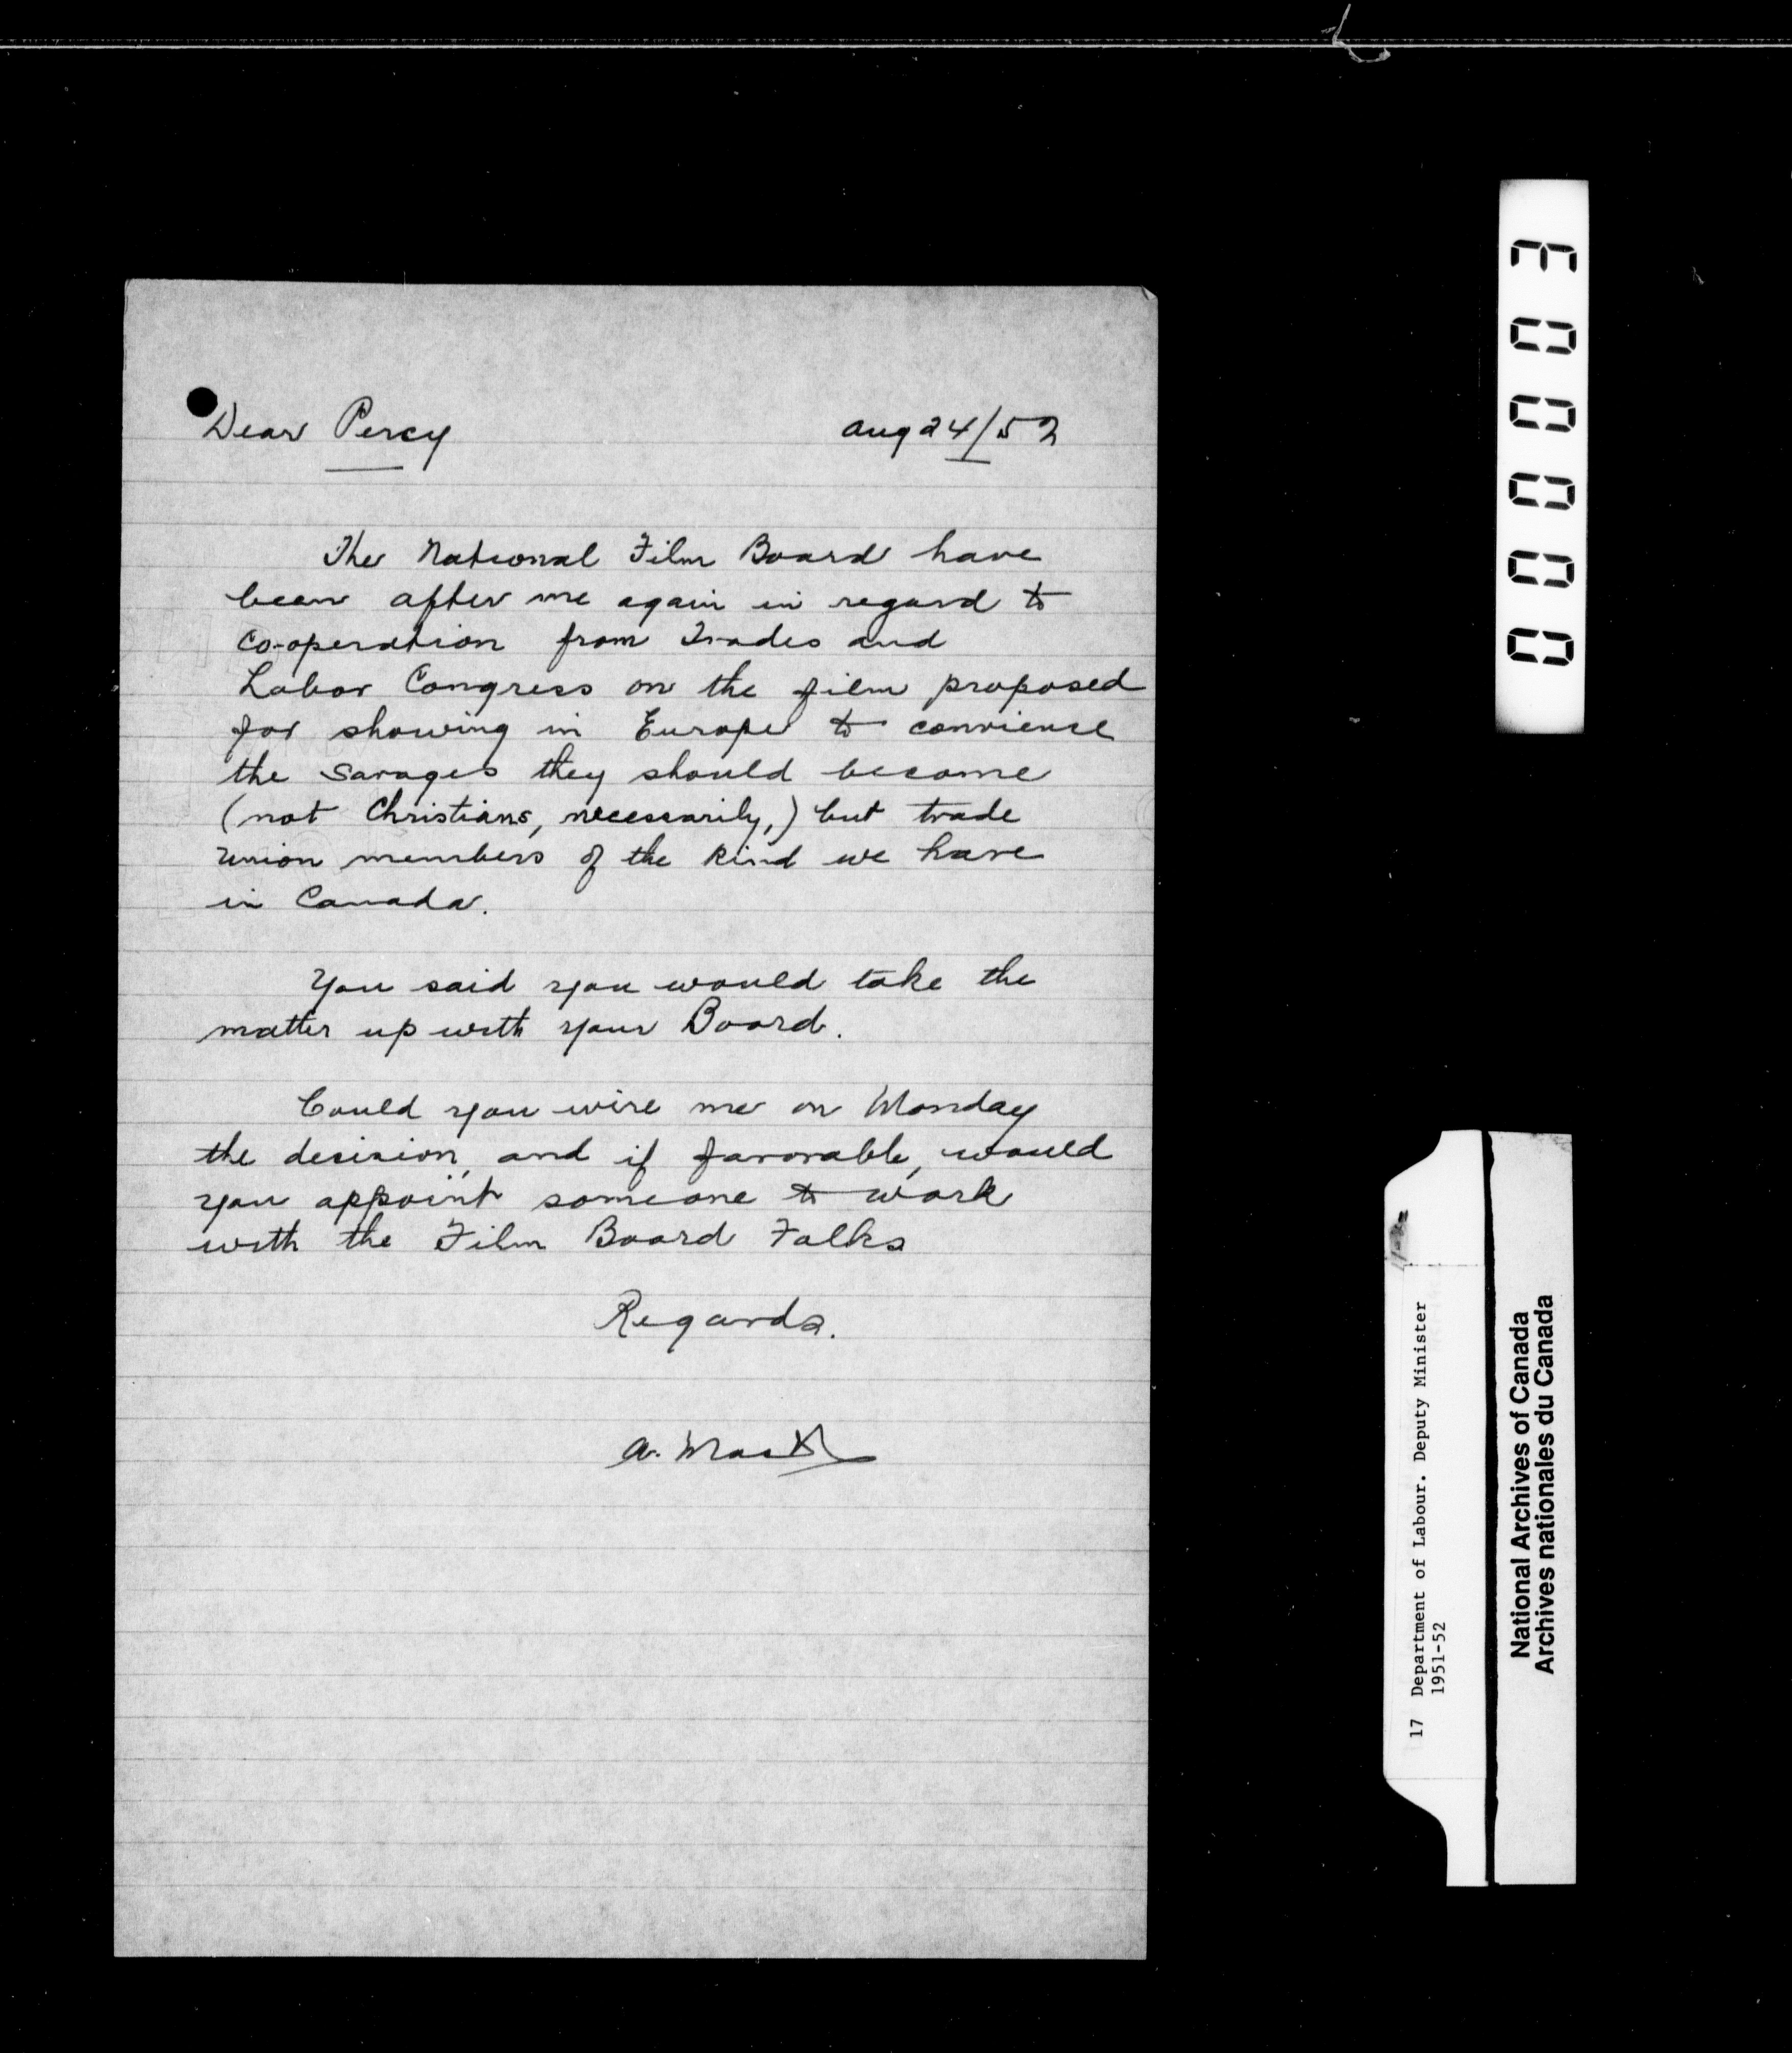 Dear Percy
Aug 24/52
The National Film Board have
been after me again in regard to
co-operation from Trades and
Labor Congress on the film proposed
for showing in Europe to convience
the Savages they should become
(not Christians, necessarily,) but trade
union members of the kind we have
in Canada.
You said you would take the
matter up with your Board.
Could you wire me on Monday
the decision, and if favorable, would
you appoint someone to work
with the Film Board Folks
Regards.
A.
000003
17 Department of Labour. Deputy Minister
1951-52
National Archives of Canada
Archives nationales du Canada